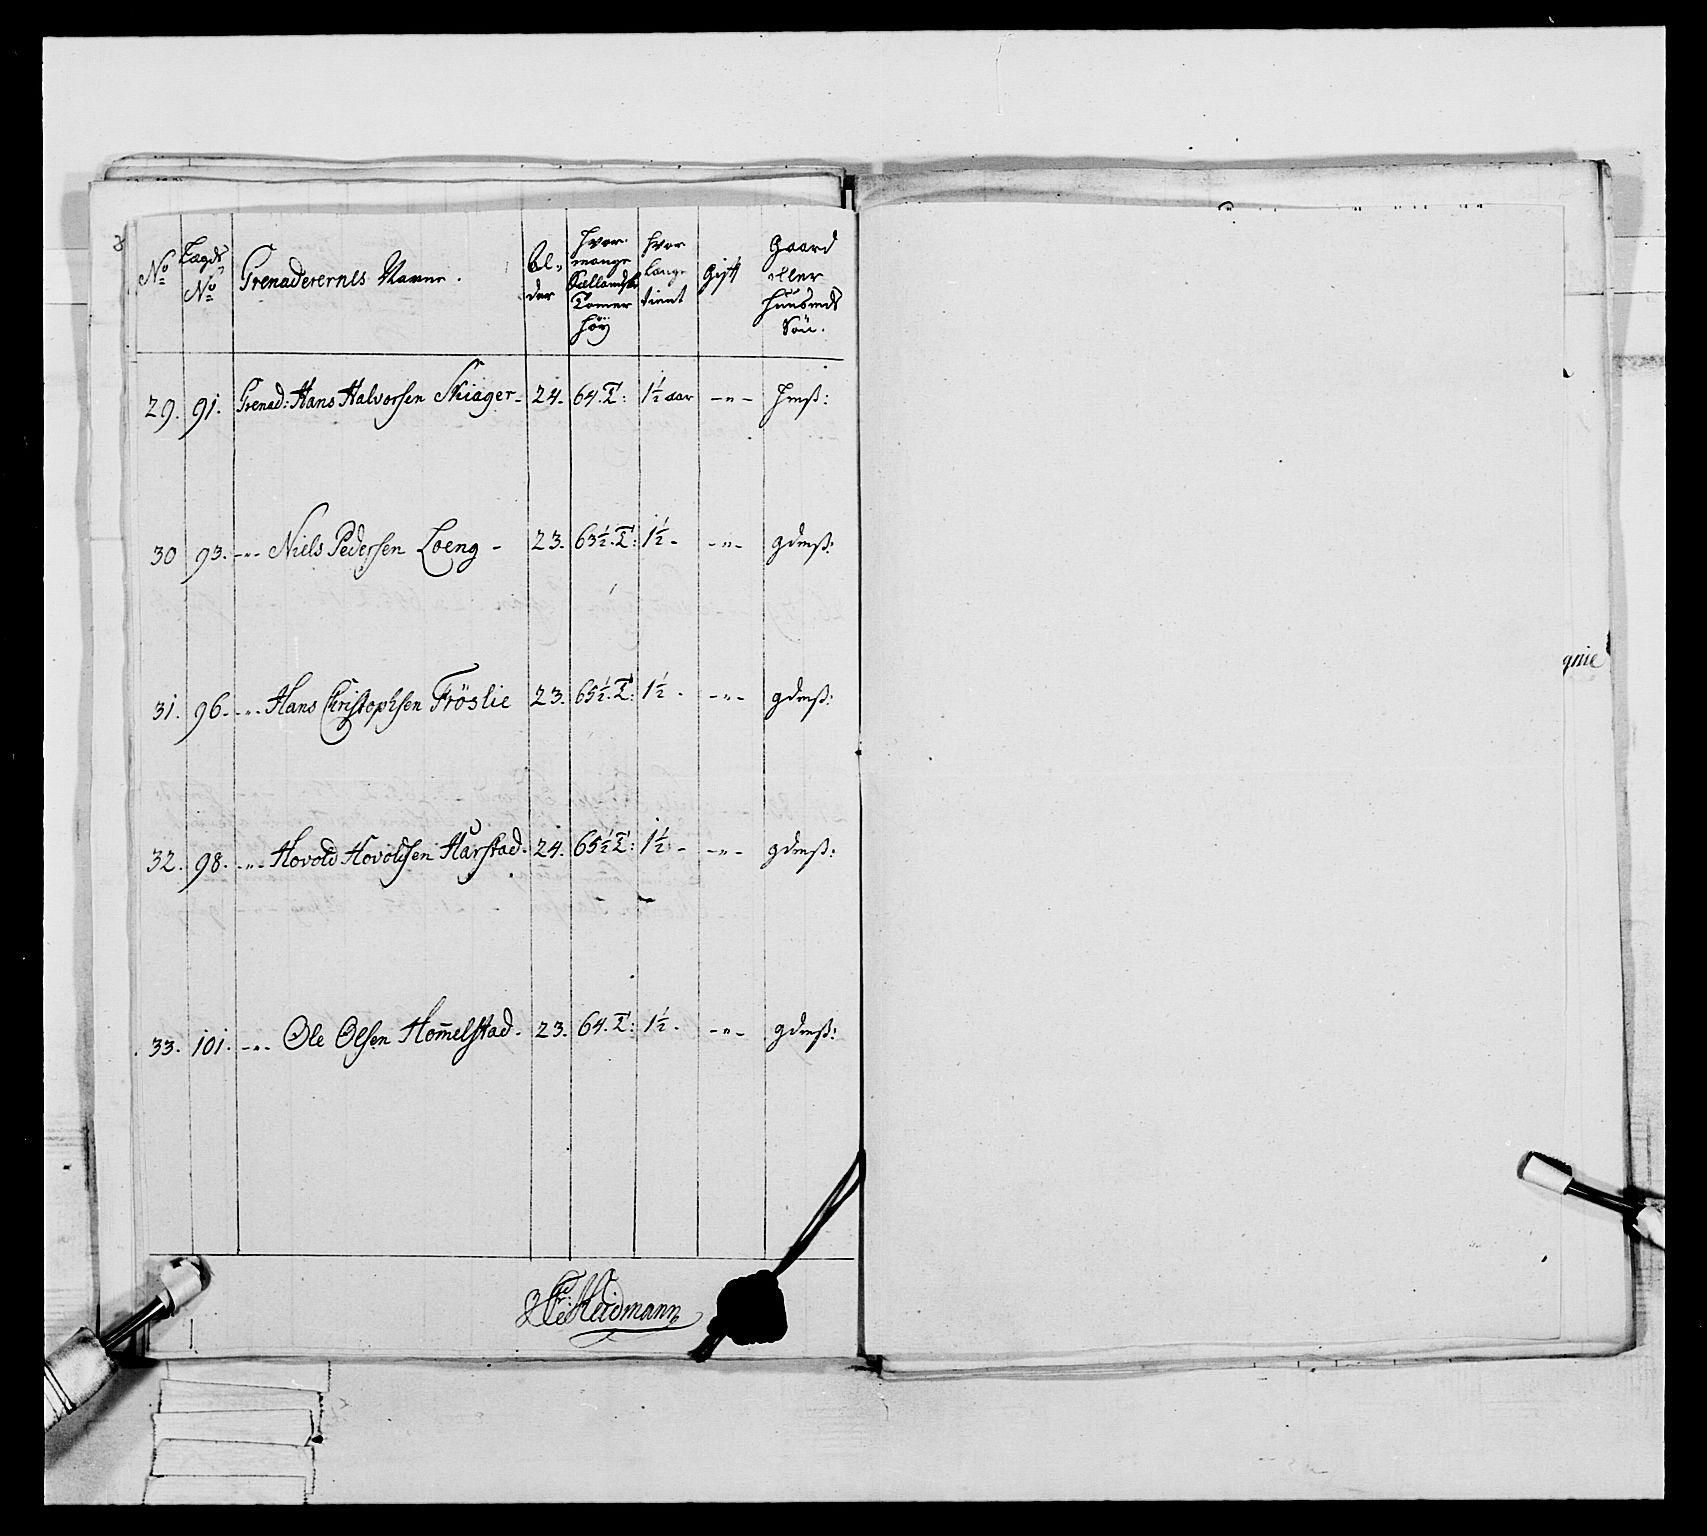 8
No Lægds No Grenaderernes Navne. Al-der hvor mange Siællandske Tomer høÿ hvor længe tient Gift Gaard eller Huusmds Søn.
29. 91. Grenad: Hans Halvorsen Skiager- 24. 64. T: 1½ aar -"- Hmß:
30 93. -"- Niels Pedersen Loeng - 23. 63½. T: 1½ - -"- gdmß:
31. 96. -"- Hans Christophsen Fröslie 23. 65½. T: 1½ - -"- gdmß:
32. 98. -"- Hovold Hovoldsen Harstad. 24. 65½ T: 1½ - -"- gdmß:
33. 101. -"- Ole Olsen Hom̅elstad. 23. 64. T: 1½ - -"- gdmß:
Heidmann
gnie